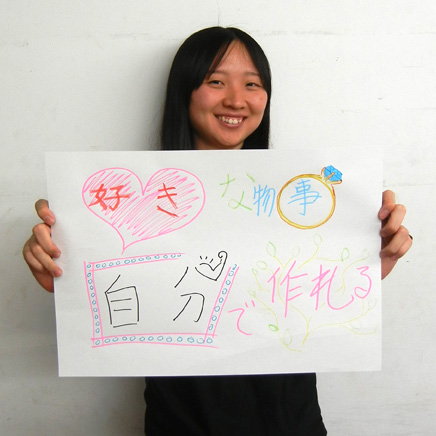 好きな物事
自分で作れる